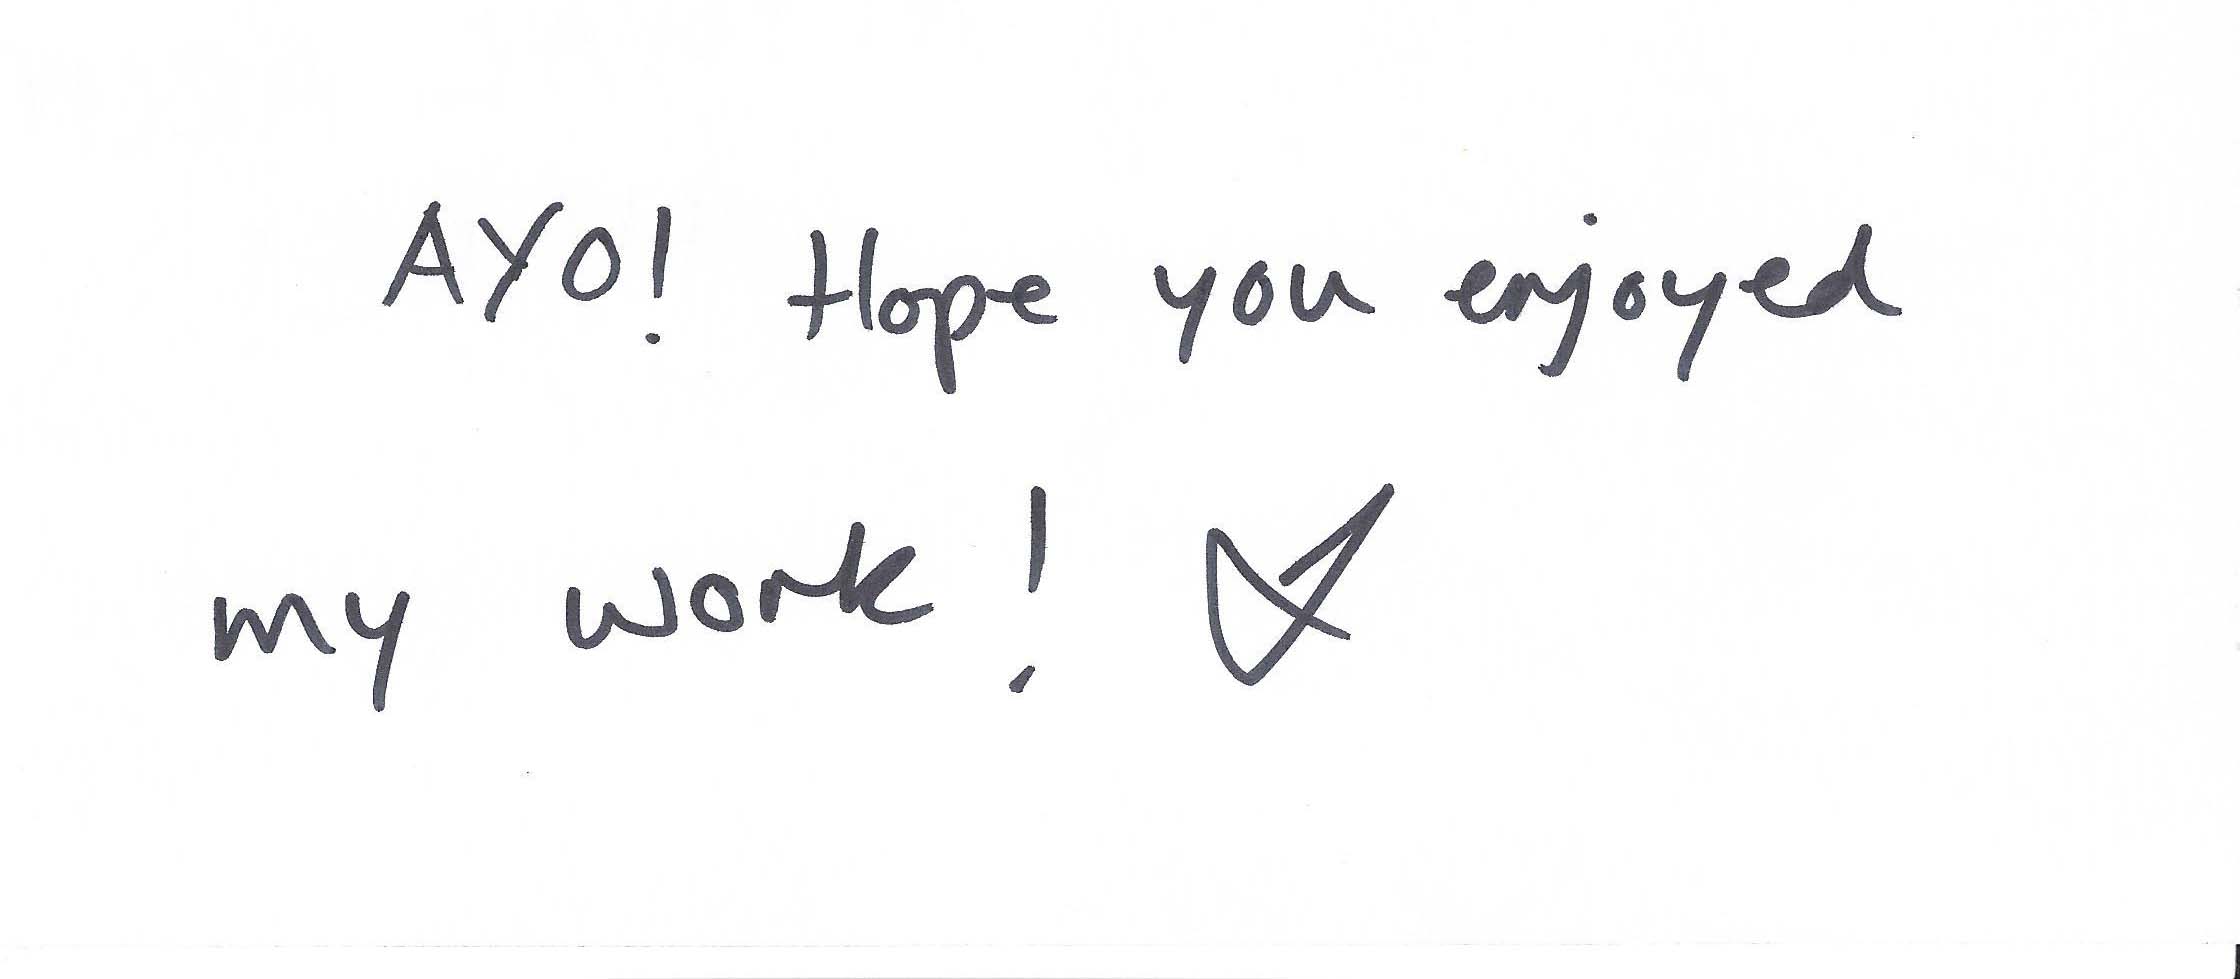 AYO! Hope you enjoyed
my work!